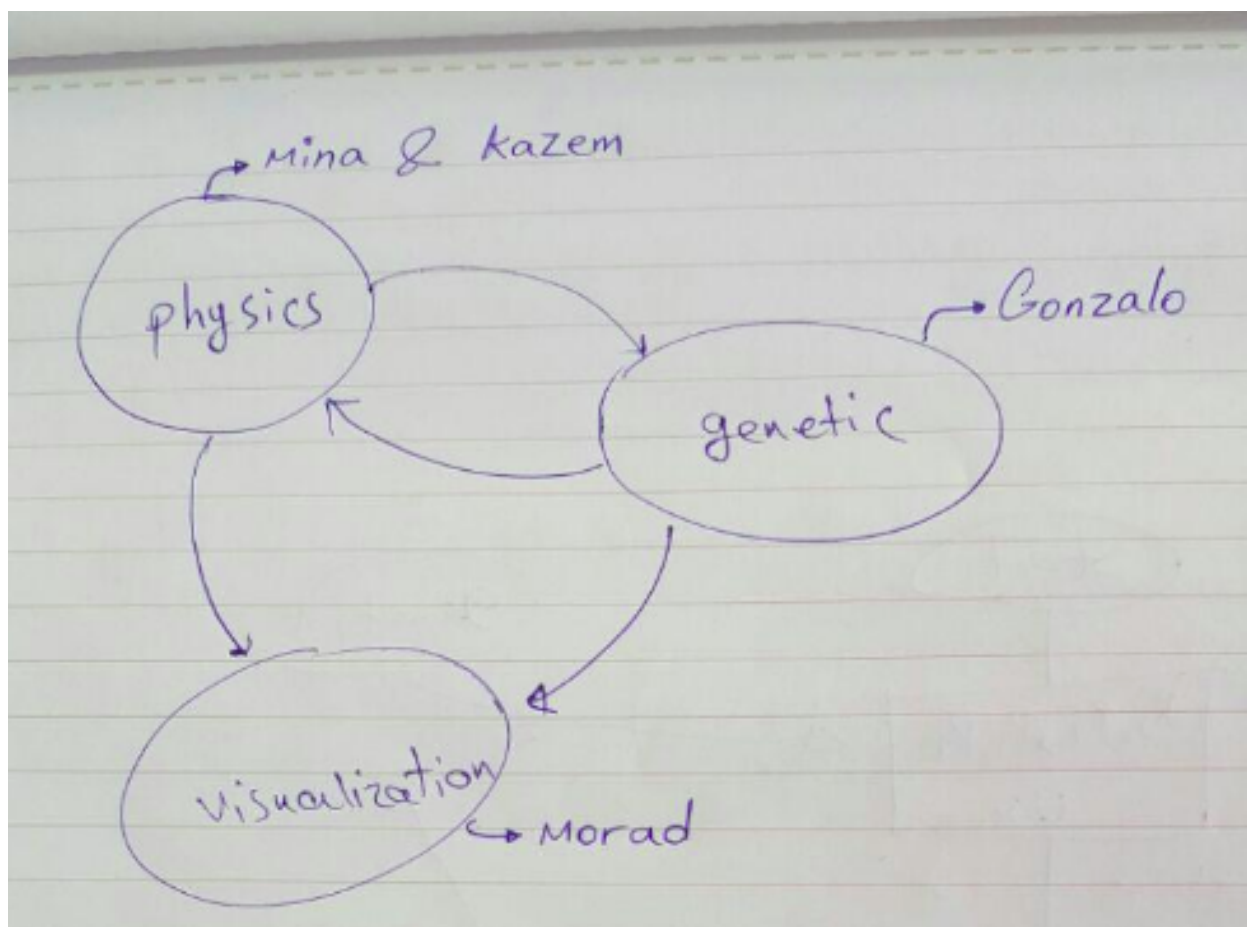 Mina & Kazem
physics
Gonzalo
genetic
visualization
Morad